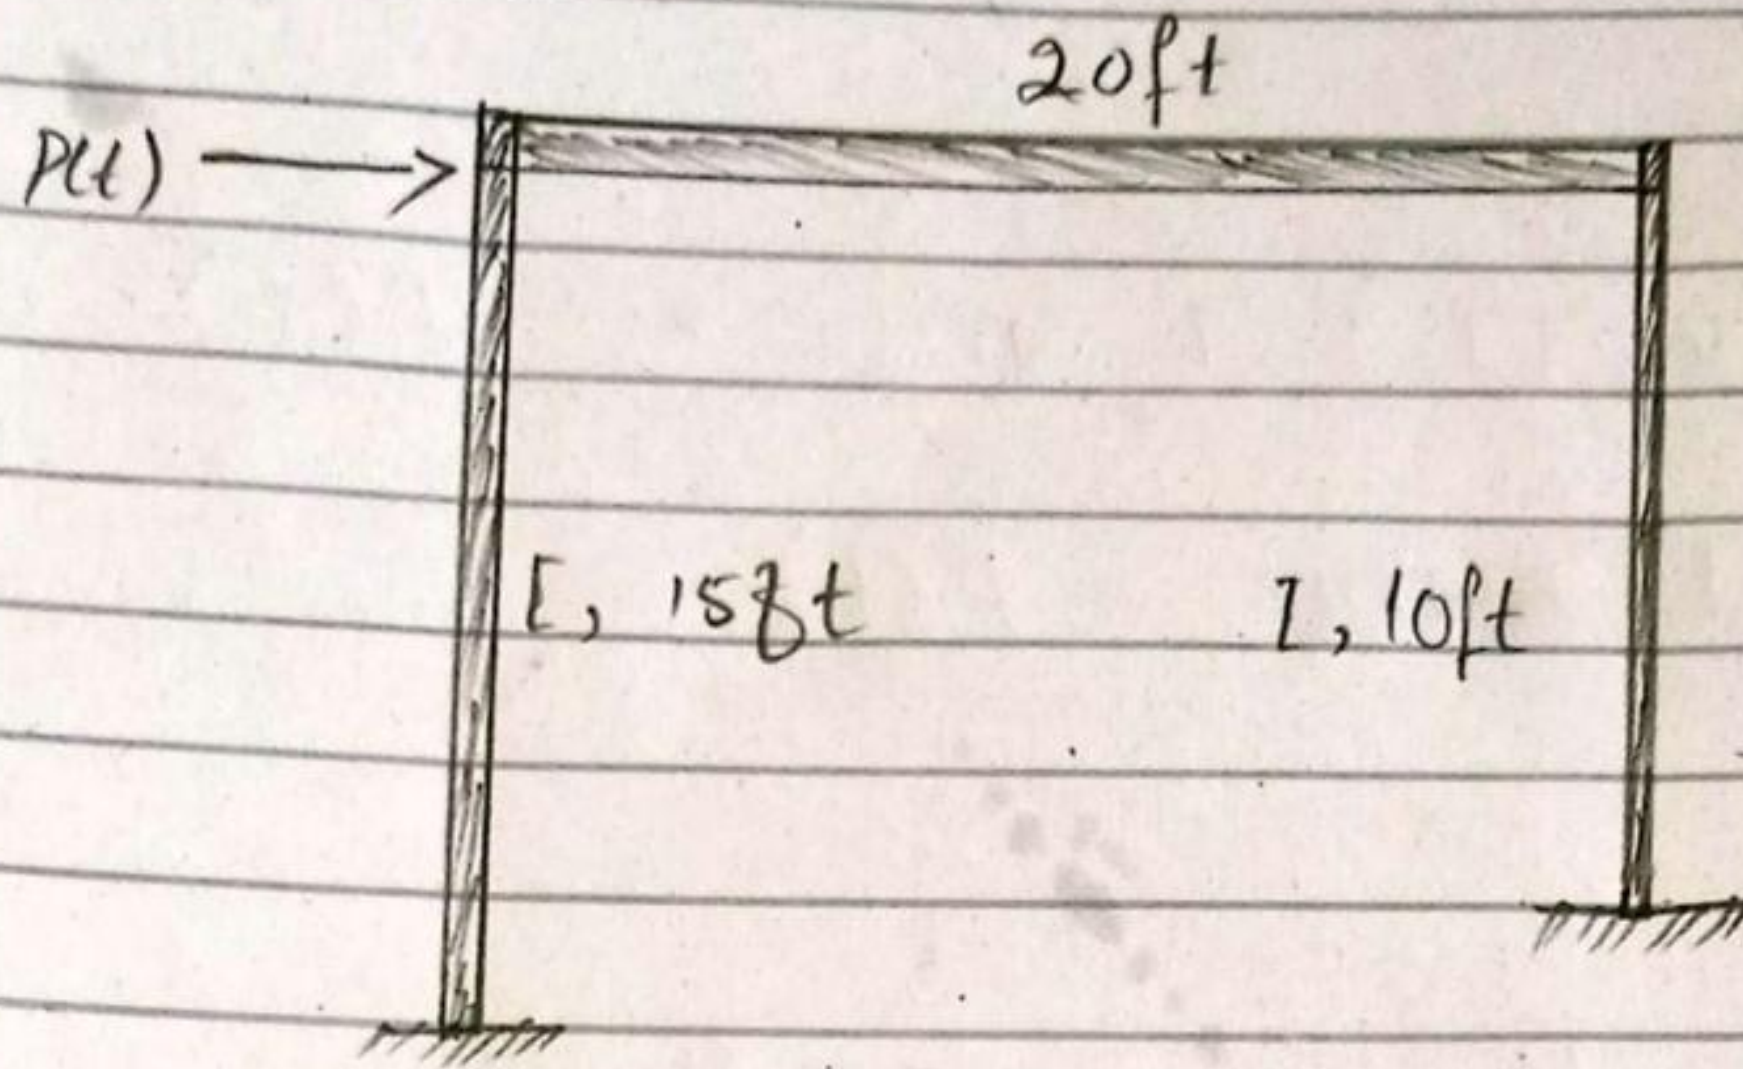 20ft
P(t)
I, 15ft
I, 10ft